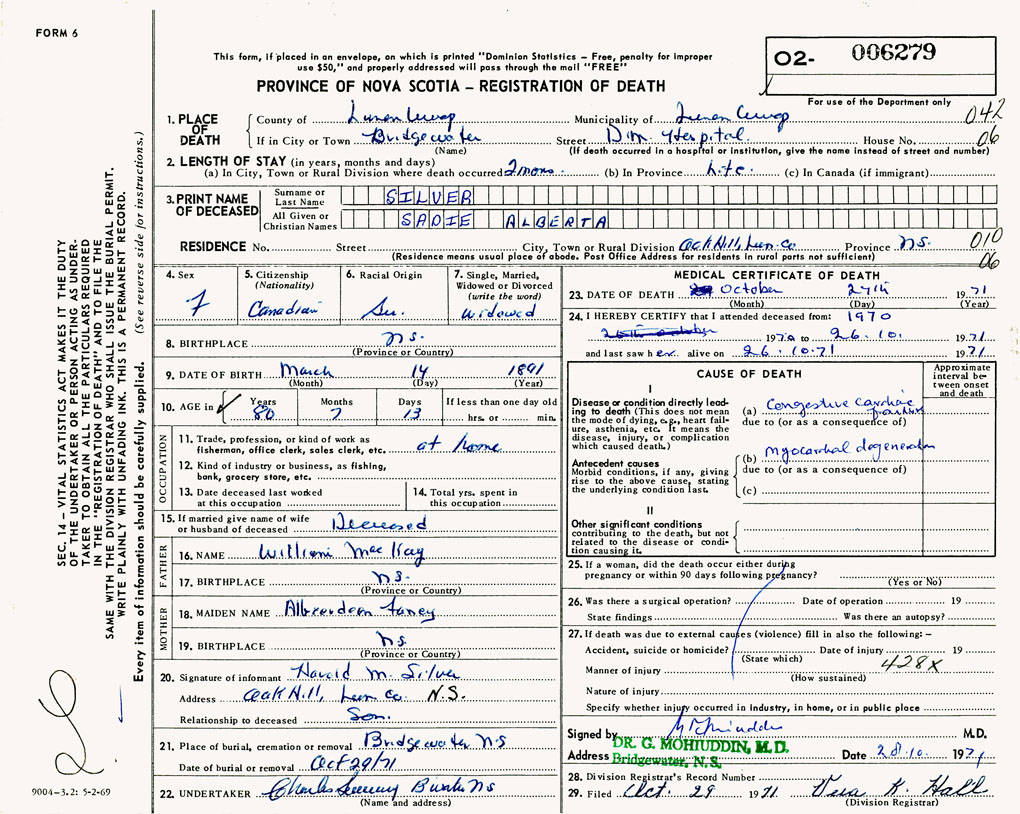 FORM 6
This form, if placed in an envelope, on which is printed "Dominion Statistics – Free, penalty for improper
use $50," and properly addressed will pass through the mail "FREE"
02- 006279
For use of the Department only
PROVINCE OF NOVA SCOTIA – REGISTRATION OF DEATH
042
06
1. PLACE OF DEATH
County of Lunenburg Municipality of Lunenburg
If in City or Town Bridgewater Street D.M. Hospital House No.
(Name) (If death occurred in a hospital or institution, give the name instead of street and number)
2. LENGTH OF STAY (in years, months and days)
(a) In City, Town or Rural Division where death occurred 2 mons. (b) In Province Life (c) In Canada (if immigrant)
3. PRINT NAME OF DECEASED
Surname or Last Name SILVER
All Given or Christian Names SADIE ALBERTA
RESIDENCE No. Street City, Town or Rural Division Oak Hill, Lun. Co Province N.S.
(Residence means usual place of abode. Post Office Address for residents in rural parts not sufficient)
010
06
4. Sex F
5. Citizenship (Nationality) Canadian
6. Racial Origin
7. Single, Married, Widowed or Divorced (write the word) Widowed
8. BIRTHPLACE N.S.
(Province or Country)
9. DATE OF BIRTH March 14 1891
(Month) (Day) (Year)
10. AGE in Years 80 Months 7 Days 13 If less than one day old hrs. or min.
OCCUPATION
11. Trade, profession, or kind of work as fisherman, office clerk, sales clerk, etc. at home
12. Kind of industry or business, as fishing, bank, grocery store, etc.
13. Date deceased last worked at this occupation
14. Total yrs. spent in this occupation
15. If married give name of wife or husband of deceased Deceased
FATHER
16. NAME William MacKay
17. BIRTHPLACE N.S.
(Province or Country)
MOTHER
18. MAIDEN NAME
19. BIRTHPLACE N.S.
(Province or Country)
20. Signature of informant Harold M. Silver
Address Oak Hill, Lun. Co. N.S.
Relationship to deceased Son.
21. Place of burial, cremation or removal Bridgewater N S
Date of burial or removal Oct 29/71
22. UNDERTAKER Charles
(Name and address)
MEDICAL CERTIFICATE OF DEATH
23. DATE OF DEATH October 27th 1971
(Month) (Day) (Year)
24. I HEREBY CERTIFY that I attended deceased from: 1970
26th October 1970 to 26.10. 1971
and last saw her alive on 26.10.71 1971
CAUSE OF DEATH
Approximate interval between onset and death
I
Disease or condition directly leading to death (This does not mean the mode of dying, e.g., heart failure, asthenia, etc. It means the disease, injury, or complication which caused death.)
(a) Congestive Cardiac failure
due to (or as a consequence of)
Antecedent causes
Morbid conditions, if any, giving rise to the above cause, stating the underlying condition last.
(b) Myocardial degeneration
due to (or as a consequence of)
(c)
II
Other significant conditions
contributing to the death, but not related to the disease or condition causing it.
25. If a woman, did the death occur either during
pregnancy or within 90 days following pregnancy?
(Yes or No)
26. Was there a surgical operation? Date of operation 19
State findings Was there an autopsy?
27. If death was due to external causes (violence) fill in also the following: –
Accident, suicide or homicide? Date of injury 19
(State which)
428X
Manner of injury
(How sustained)
Nature of injury
Specify whether injury occurred in industry, in home, or in public place
Signed by M.D.
Address DR. G. MOHIUDDIN, M.D. Bridgewater, N.S. Date 28.10. 1971
28. Division Registrar's Record Number
29. Filed Oct. 29 1971 Vera K. Hall
(Division Registrar)
SEC. 14 – VITAL STATISTICS ACT MAKES IT THE DUTY
OF THE UNDERTAKER OR PERSON ACTING AS UNDER-
TAKER TO OBTAIN ALL THE PARTICULARS REQUIRED
IN THE "REGISTRATION OF DEATH" AND TO FILE THE
SAME WITH THE DIVISION REGISTRAR WHO SHALL ISSUE THE BURIAL PERMIT.
WRITE PLAINLY WITH UNFADING INK. THIS IS A PERMANENT RECORD.
Every item of information should be carefully supplied. (See reverse side for instructions.)
9004-3.2: 5-2-69